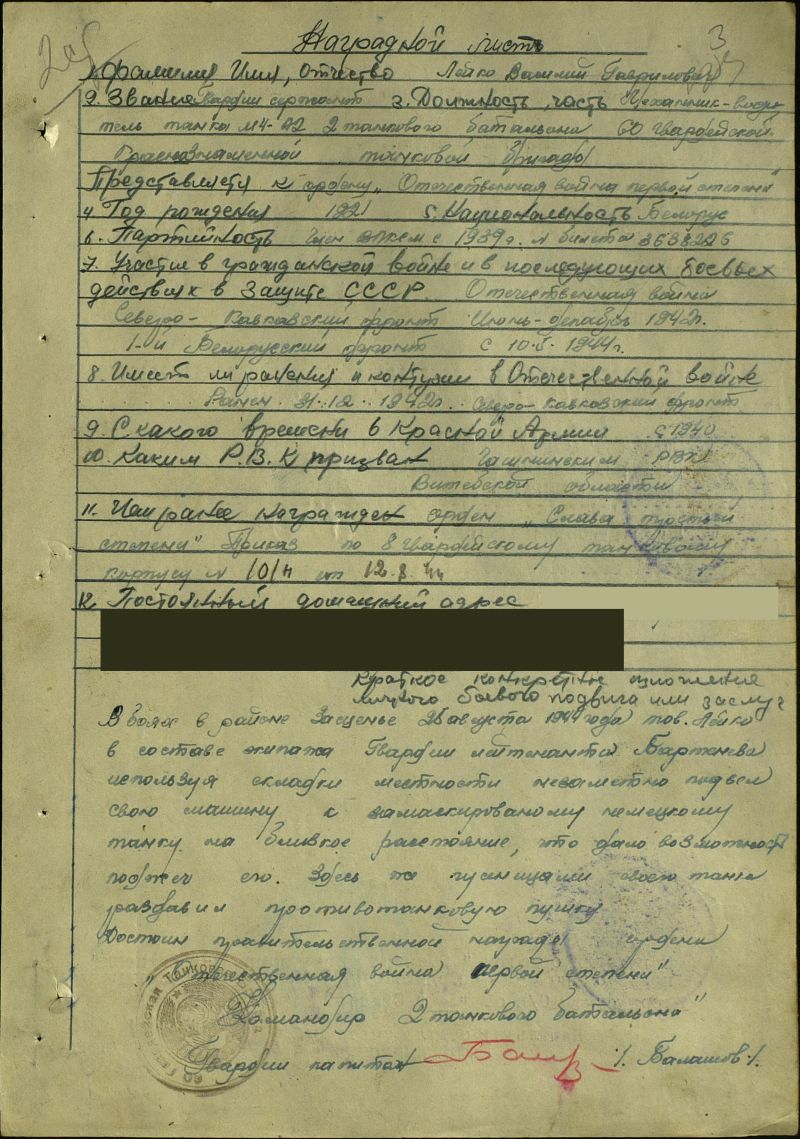 Наградной листъ
3
1. Фамилия Имя, Отчество Лейко Василий Гаврилович
2. Звание Гвардии сержант 3. Должность, часть Механик-води-
тель танка М4-А2 2 танкового батальона 60 гвардейской
Краснознаменной танковой бригады
Представляется к ордену „Отечественная война первой степени"
4. Год рождения 1921 5. Национальность Белорус
6. Партийность Член ВЛКСМ с 1939г. № билета 3638226
7. Участие в гражданской войне и в последующих боевых
действиях в защите СССР. Отечественная война
Северо-Кавкавский фронт Июнь-декабрь 1942г.
1-й Белорусский фронт с 10.5.1944г.
8. Имеет ли ранения и контузии в Отечественной войне
Ранен 31.12.1942г. Северо-Кавкавский фронт
9. С какого времени в Красной Армии с 1940
10. Каким Р.В.К призван Чашникским РВК
Витебской области
11. Чем ранее награжден орден „Слава третьей
степени" Приказ по 8 гвардейскому танковому
корпусу № 101/н от 12.8.44 г.
12. Постоянный домашний адрес
Краткое конкретное изложение
личного боевого подвига или заслуг
В боях в районе Засценье 26 августа 1944 года тов. Лейко
в составе экипажа Гвардии лейтенанта
используя складки местности незаметно подвел
свою машину к замаскированому немецкому
танку на близкое расстояние, что дало возможность
поджеч его. Здесь же гусеницами своего танка
раздавил противотанковую пушку
Достоин правительственной награды ордена
„Отечественная война первой степени"
Командир 2 танкового батальона"
Гвардии капитан /. Балашов /.